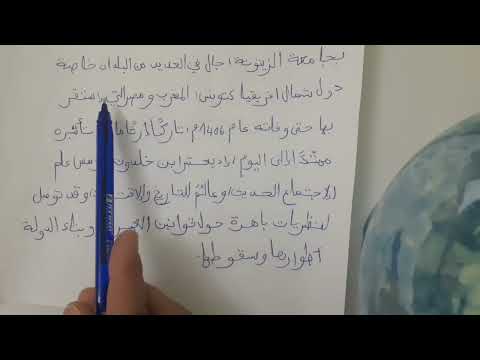 بجامعة الزيتونة، جال في العديد من البلدان خاصة
دول شمال افريقيا كتونس، المغرب و مصر التي استقر
بها حتى وفاته عام 1406م، تاركًا تأثيره
ممتدًا الى اليوم، إذ يعتبر ابن خلدون علم
الاجتماع الحديث، وعالمًا للتاريخ والاقتصاد، وقد توصل
لنظريات باهرة حول قوانين وبناء الدولة
أطوارها وسقوطها.